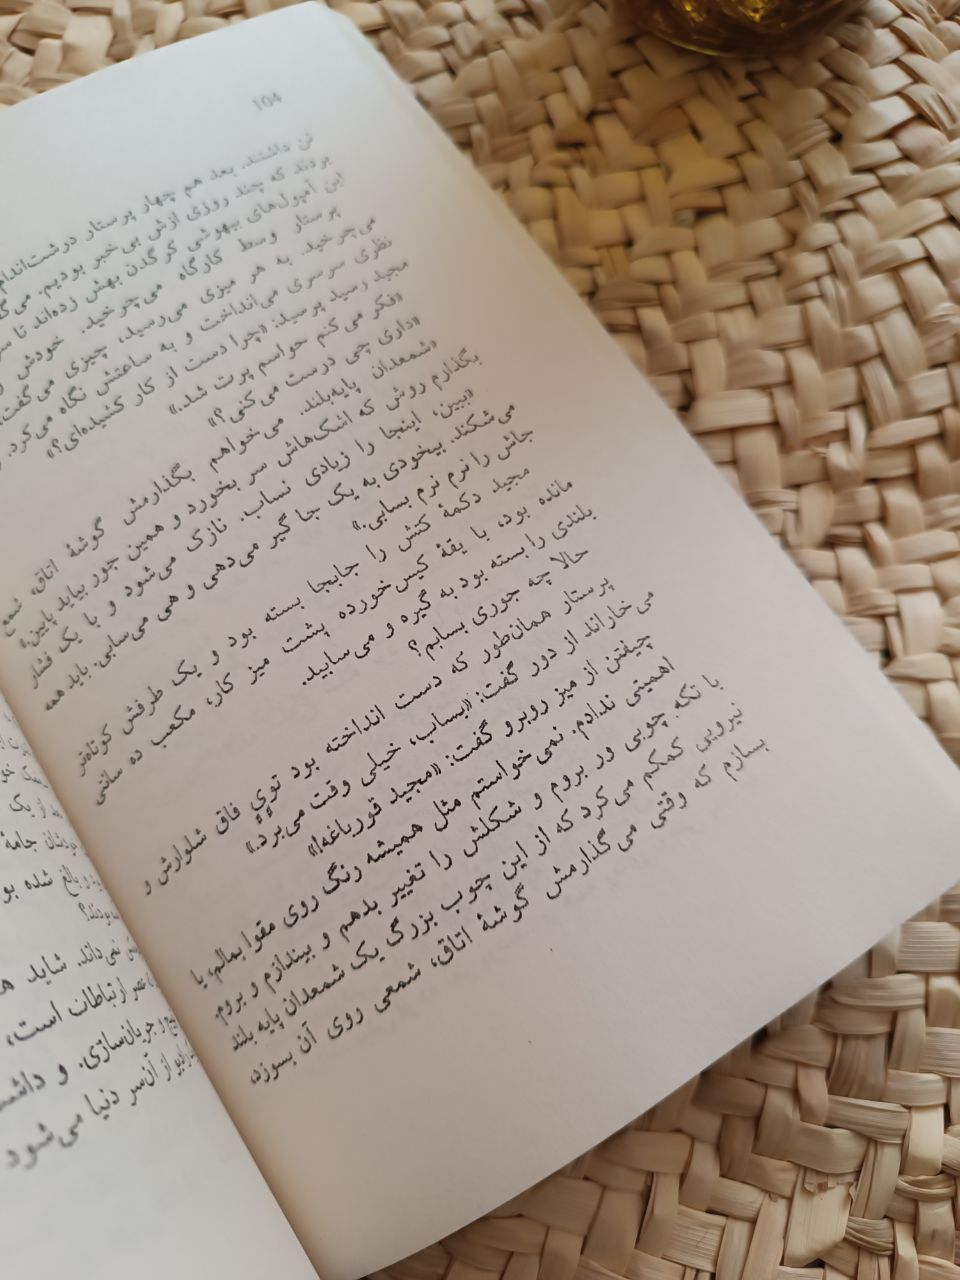 104
تن داشتند. بعد هم چهار پرستار درشت‌اندام
بردند که چند روزی ازش بی‌خبر بودیم. می‌گ
این آمپول‌های بیهوشی کرگدن بهش زده‌اند تا سر
پرستار وسط کارگاه می‌چرخید. خودش
می‌چرخید. به هر میزی می‌رسید، چیزی می‌گفت،
نظری سرسری می‌انداخت و به ساعتش نگاه می‌کرد.
مجید رسید پرسید: «چرا دست از کار کشیده‌ای؟»
«فکر می‌کنم حواسم پرت شد.»
«داری چی درست می‌کنی؟»
«شمعدان پایه‌بلند. می‌خواهم بگذارمش گوشهٔ اتاق، شمع
بگذارم روش که اشک‌هاش سر بخورد و همین جور بیاید پایین.»
«ببین، اینجا را زیادی نساب. نازک می‌شود و با یک فشار
می‌شکند. بیخودی به یک جا گیر می‌دهی و هی می‌سابی. باید همه
جاش را نرم نرم بسابی.»
مجید دکمهٔ کتش را جابجا بسته بود و یک طرفش کوتاه‌تر
مانده بود، با یقهٔ کیس‌خورده پشت میز کار، مکعب ده سانتی
بلندی را بسته بود به گیره و می‌سابید.
حالا چه جوری بسابم؟
پرستار همان‌طور که دست انداخته بود تویِ فاق شلوارش و
می‌خاراند از دور گفت: «بساب، خیلی وقت می‌برد.»
چیفتن از میز روبرو گفت: «مجید قورباغه!»
اهمیتی ندادم. نمی‌خواستم مثل همیشه رنگ روی مقوا بمالم، یا
با تکه چوبی ور بروم و شکلش را تغییر بدهم و بیندازم و بروم.
نیرویی کمکم می‌کرد که از این چوب بزرگ یک شمعدان پایه بلند
بسازم که وقتی می‌گذارمش گوشهٔ اتاق، شمعی روی آن بسوزد،
از یک
جامهٔ
و بالغ شده بو
نمی‌داند. شاید
عصر ارتباطات است،
و جریان‌سازی. و داشت
از آن‌سر دنیا می‌شود